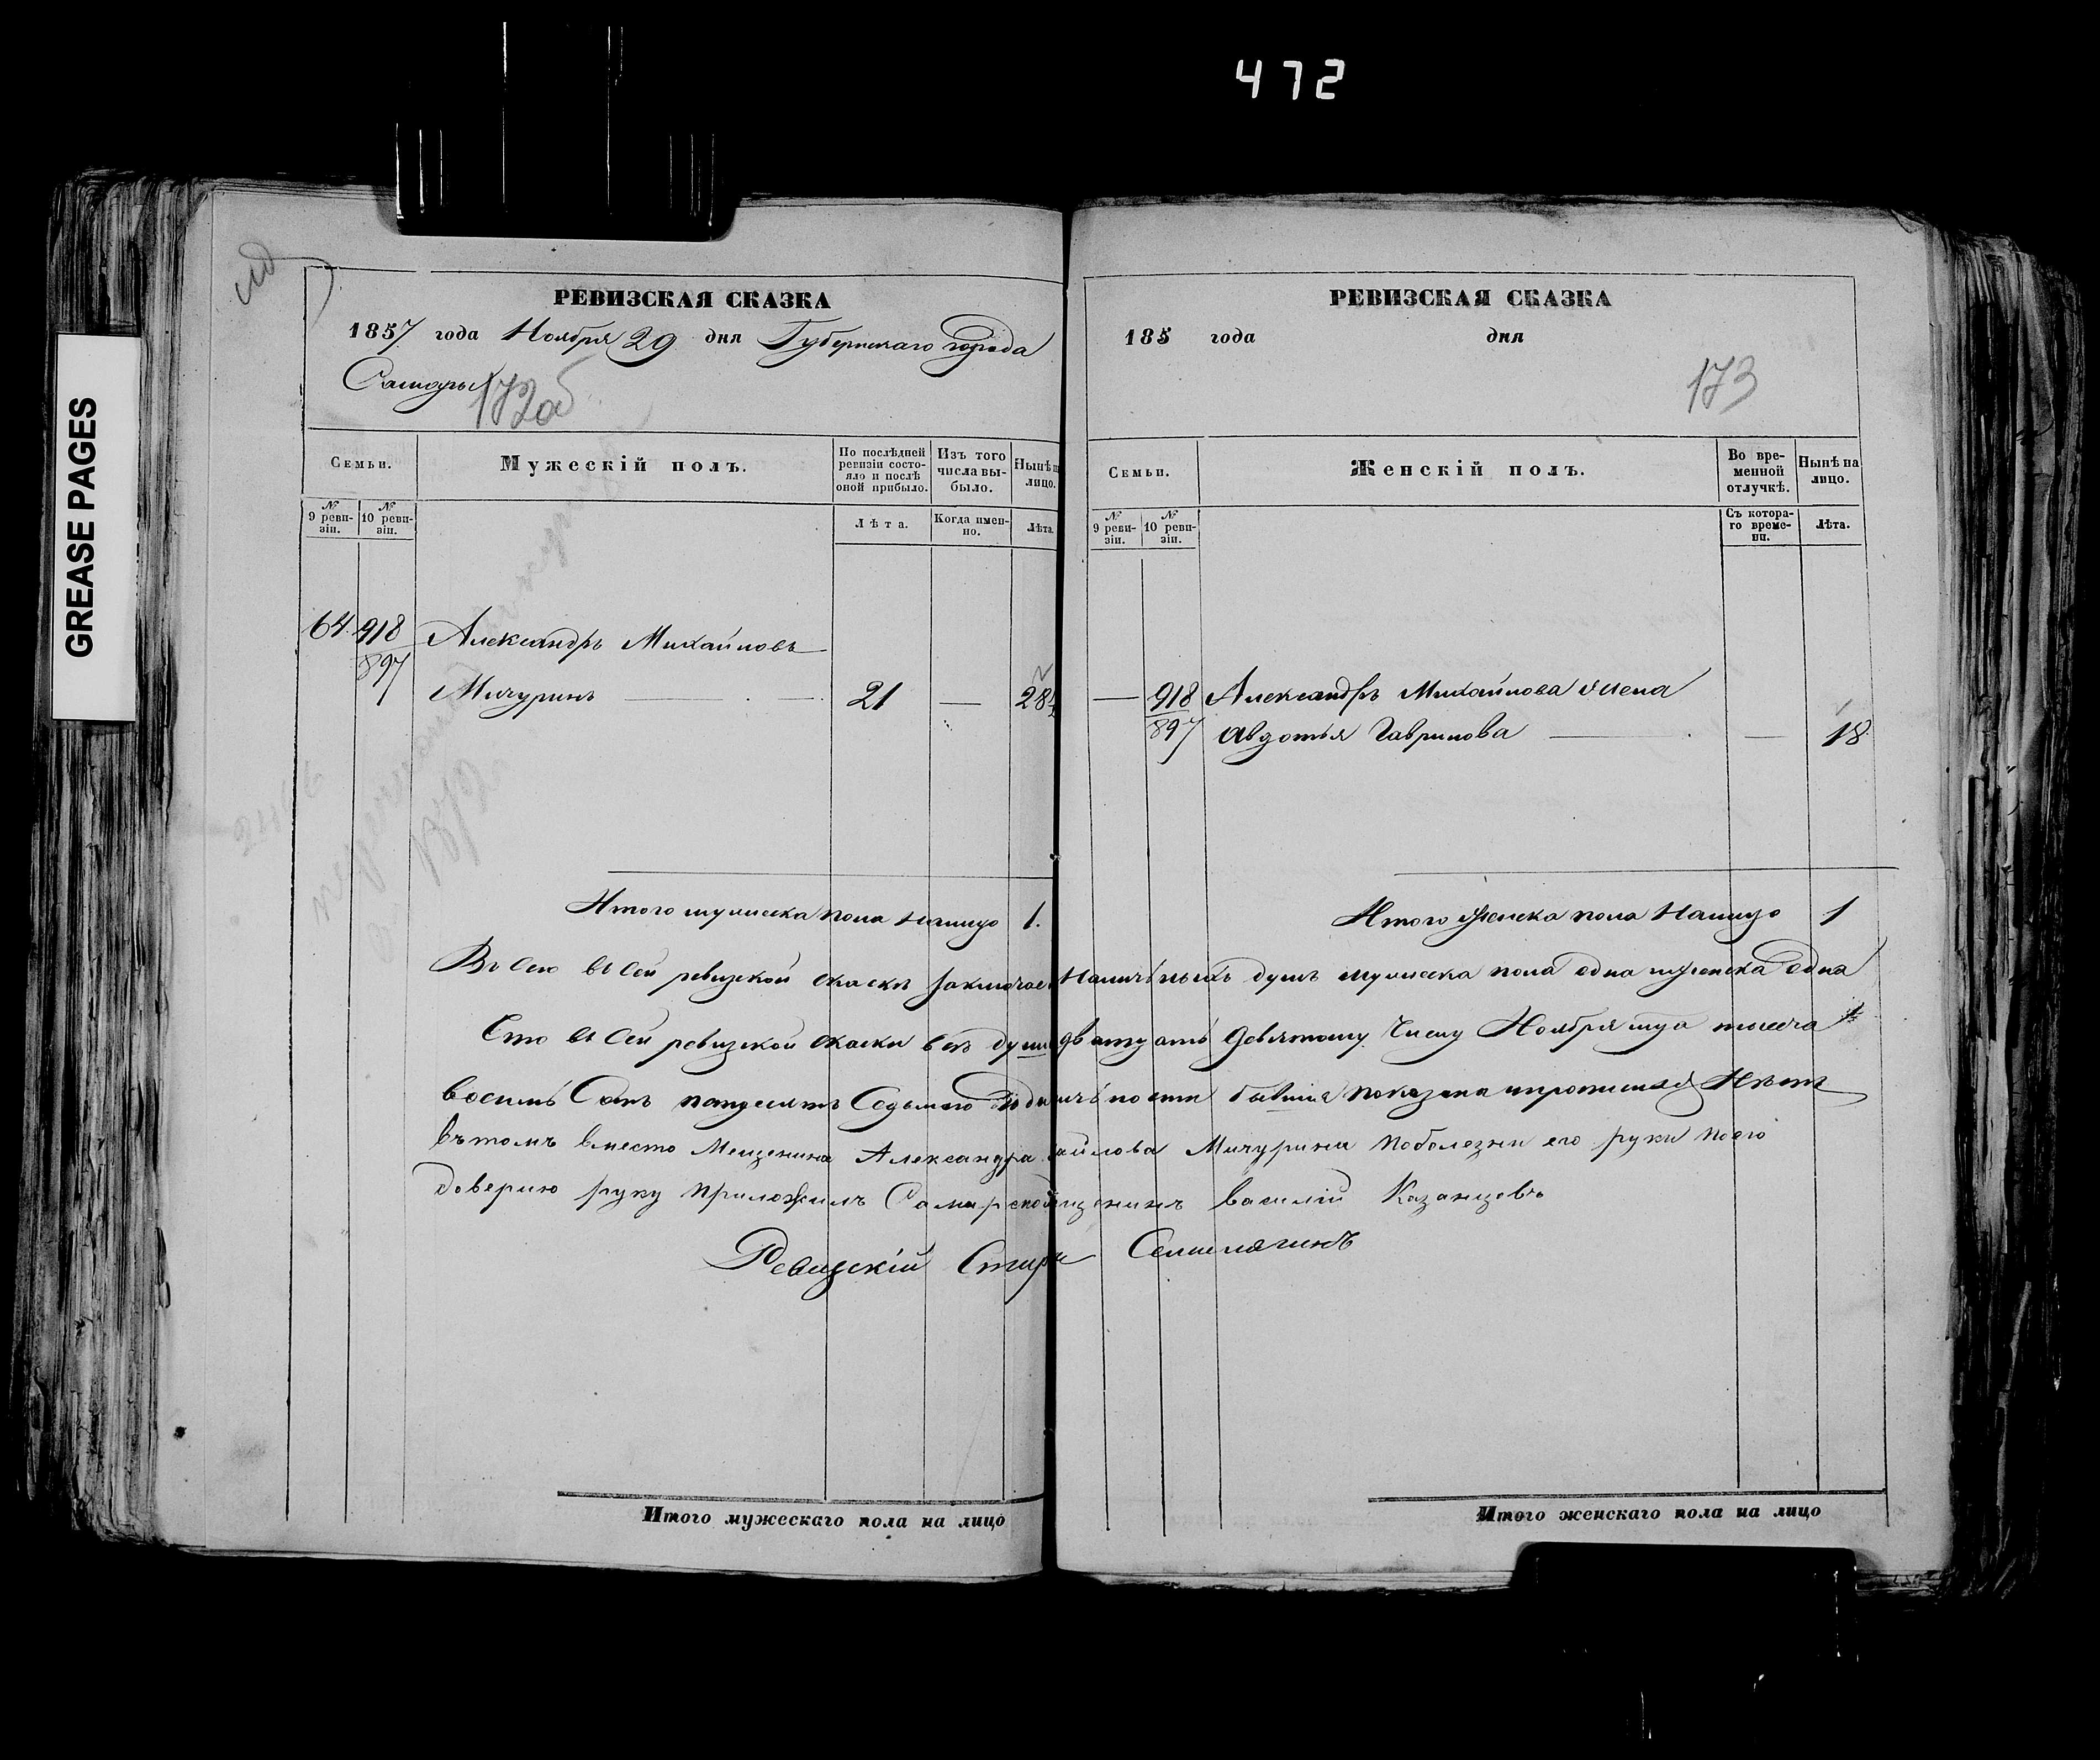 472
GREASE PAGES
РЕВИЗСКАЯ СКАЗКА
1857 года Ноября 29 дня Губернскаго города
Самары
172об
Семьи.
Мужескій полъ.
По послѣдней ревизіи состояло и послѣ оной прибыло.
Изъ того числа выбыло.
Нынѣ на лицо.
№ 9 ревизіи.
№ 10 ревизіи.
Лѣта.
Когда именно.
Лѣта.
64 918 Александръ Михайловъ
897
Мичуринъ 21 — 28
Итого мужеска пола налицо 1.
РЕВИЗСКАЯ СКАЗКА
185 года дня
173
Семьи.
Женскій полъ.
Во временной отлучкѣ.
Нынѣ на лицо.
№ 9 ревизіи.
№ 10 ревизіи.
Съ котораго времени.
Лѣта.
— 918 Александръ Михайлова жена
897 Авдотья Гаврилова — 18
Итого женска пола налицо 1
въ сей ревизской скаскѣ заключае наличныхъ душъ мужеска пола одна и женска одна
Что въ сей ревизской скаски всѣ души двадцать девятому числу Ноября мца тысеча
восимь Сотъ пятдесятъ Седьмого показана и прописныхъ Нѣтъ
въ томъ вместо Мещенина Александра айлова Мичурина по болезни его руки по его
доверию руку приложилъ Самарской щенинъ василий Казанцевъ
Ревизскій
Итого мужескаго пола на лицо
Итого женскаго пола на лицо